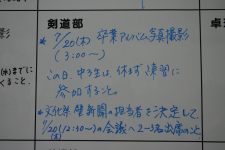 剣道部
卓
影
* 7/20(木) 卒業アルバム写真撮影
(3:00〜)
この日、中3生は、休まず練習に
参加すること。
(木)までに
くること.
* 文化祭 壁新聞の担当者を決定して
7/20(12:40〜)の会議へ2〜3名出席のこと
(木)